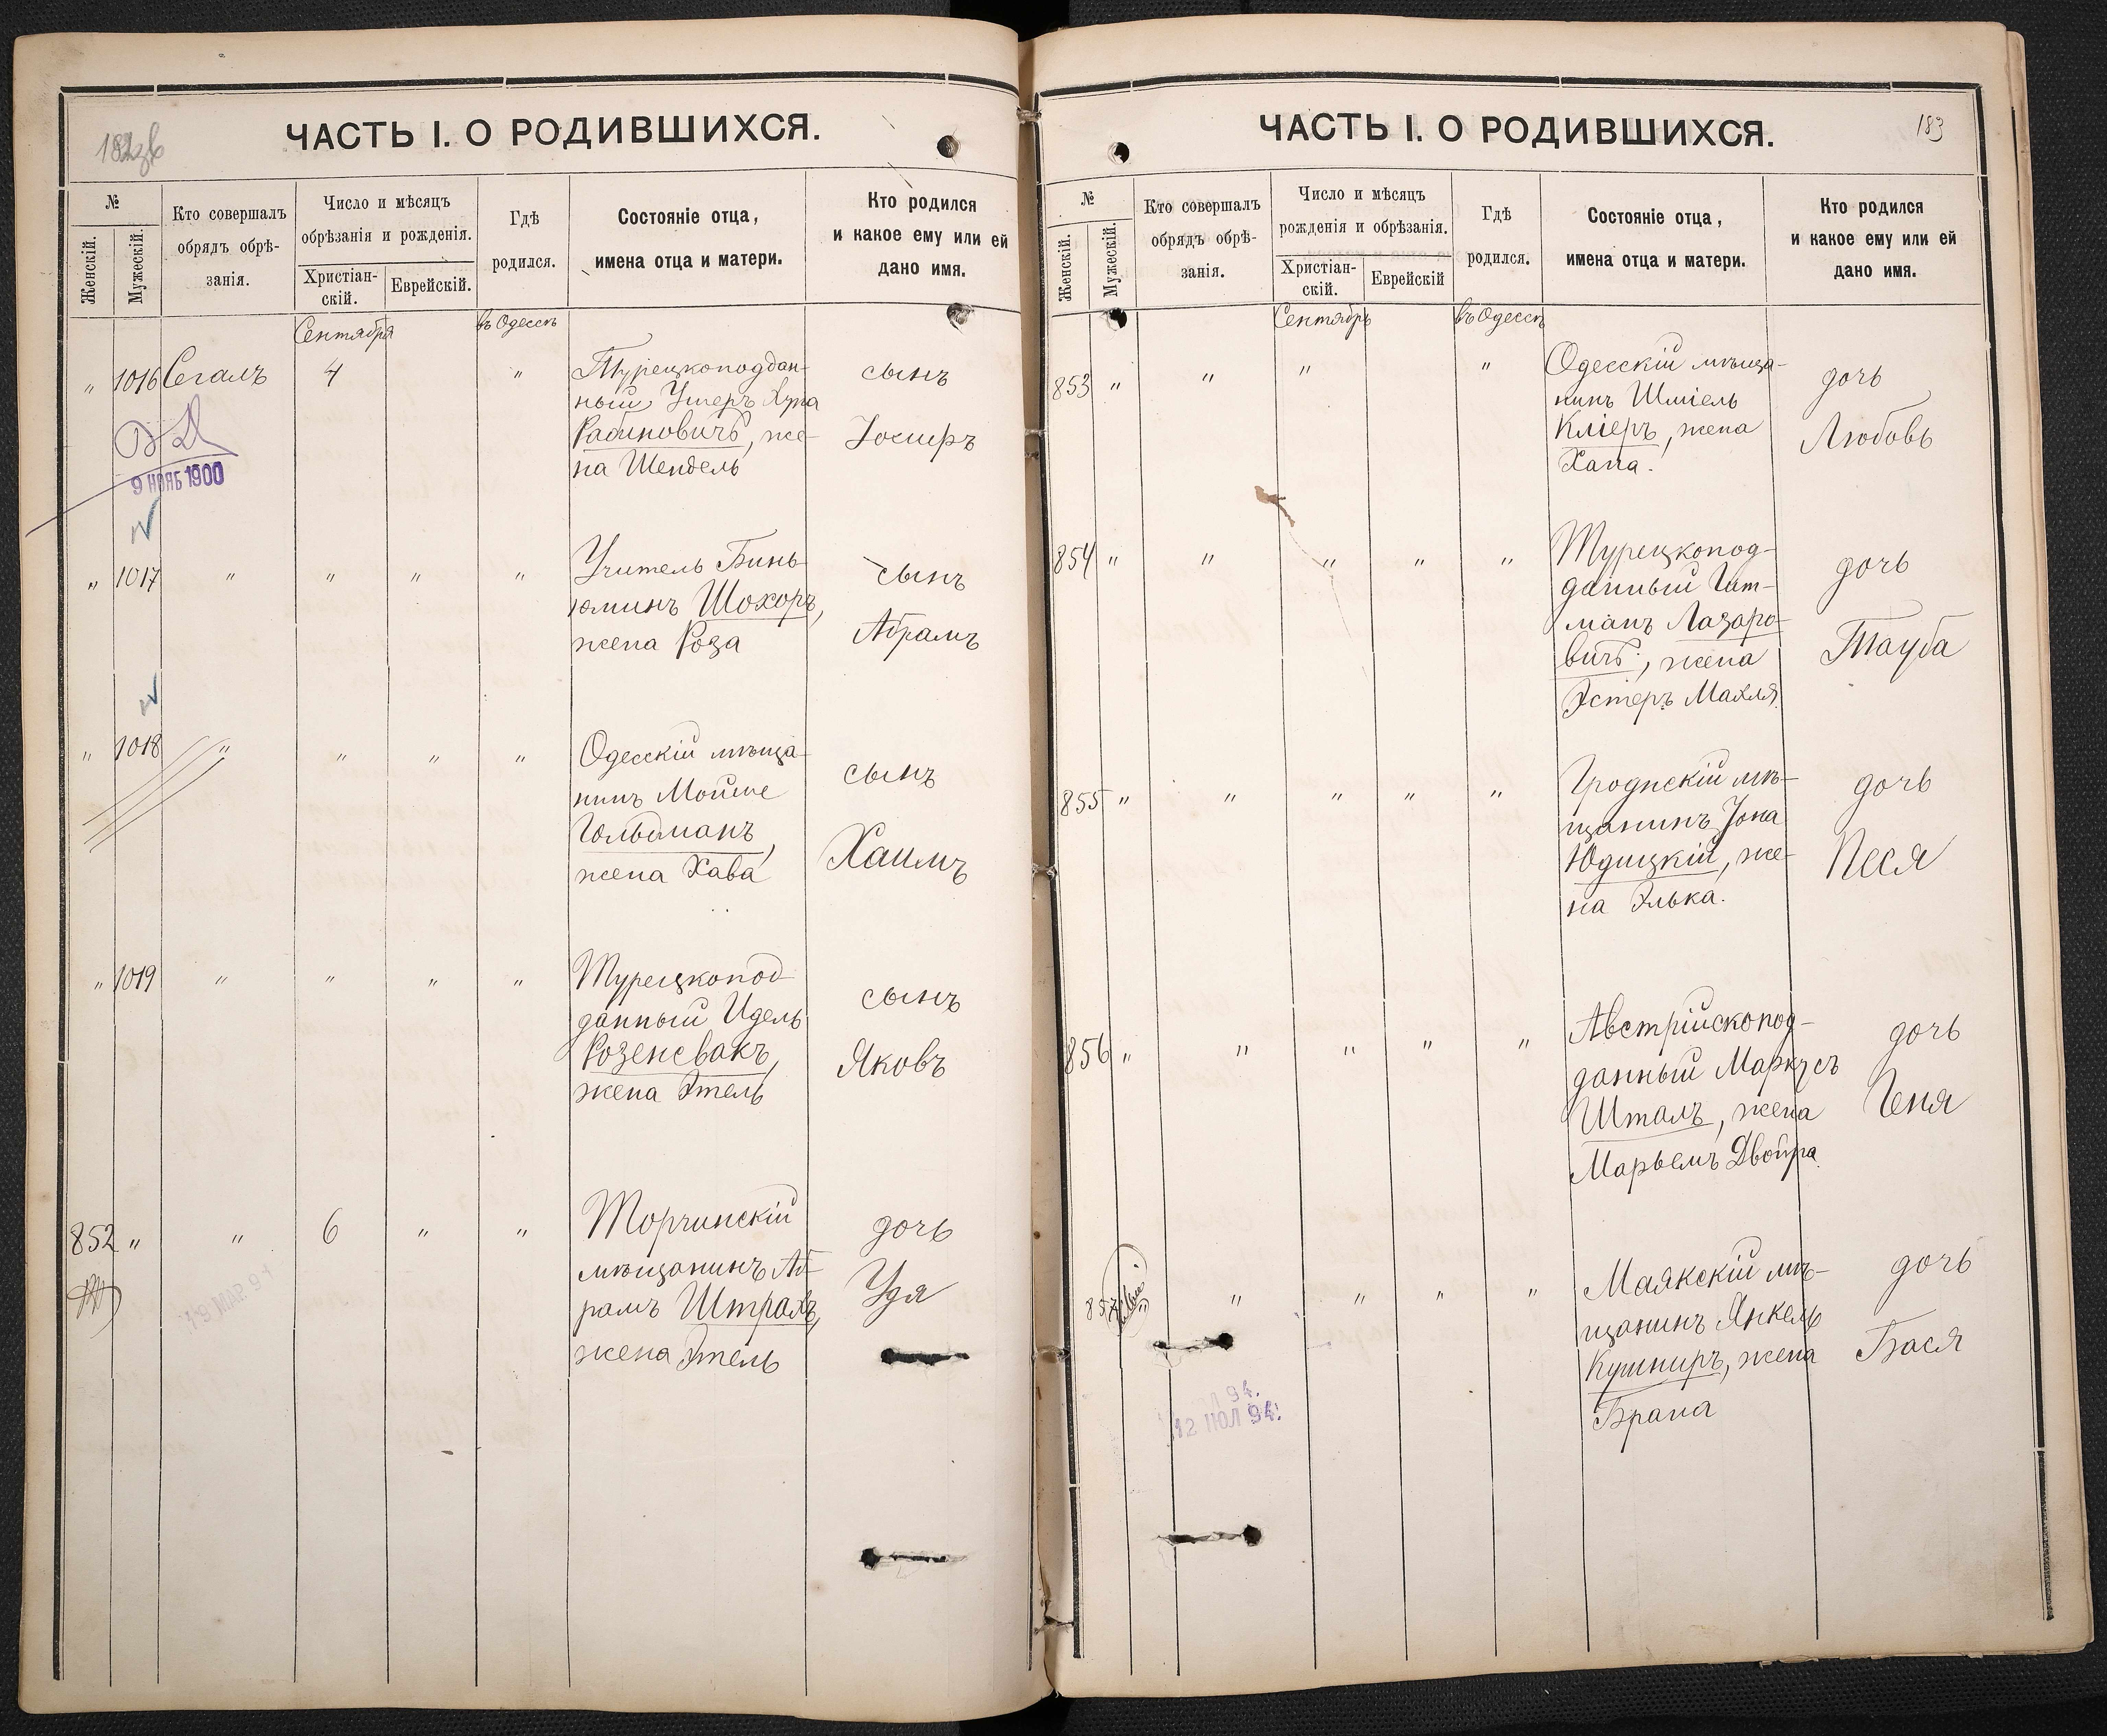 ЧАСТЬ I. О РОДИВШИХСЯ.
№
Женскій.
Мужескій.
Кто совершалъ
обрядъ обрѣ-
занія.
Число и мѣсяцъ
обрѣзанія и рожденія.
Христіан-
скій.
Еврейскій.
Гдѣ
родился.
Состояніе отца,
имена отца и матери.
Кто родился
и какое ему или ей
дано имя.
Сентября
въ Одессѣ
" 1016 Сегалъ 4 "
Турецкоподдан-
ный Ушеръ
Рабиновичъ, же-
на Шендель
сынъ
Іосифъ
9 НОЯБ 1900
" 1017 " " " "
Учитель Бинь-
юминъ Шохоръ,
жена Роза
сынъ
Абрамъ
" 1018 " " " "
Одесскій мѣща-
нинъ Мойше
Гольдманъ,
жена Хава
сынъ
Хаимъ
" 1019 " " " "
Турецкопод-
данный Идель
Розенсвакъ,
жена Этель
сынъ
Яковъ
852 " " 6 " "
Торчинскій
мѣщанинъ Аб-
рамъ Штрахъ,
жена Этель
дочь
Удя
19 МАР 94
ЧАСТЬ I. О РОДИВШИХСЯ.
183
№
Женскій.
Мужескій.
Кто совершалъ
обрядъ обрѣ-
занія.
Число и мѣсяцъ
рожденія и обрѣзанія.
Христіан-
скій.
Еврейскій
Гдѣ
родился.
Состояніе отца,
имена отца и матери.
Кто родился
и какое ему или ей
дано имя.
Сентябрь
въ Одессѣ
853 " " " "
Одесскій мѣща-
нинъ Шміель
Кліеръ, жена
Хана.
дочь
Любовь
854 " " " " "
Турецкопод-
данный Гит-
манъ Лазаро-
вичъ, жена
Эстеръ Махля.
дочь
Тауба
855 " " " " "
Гродненскій мѣ-
щанинъ Іона
Юдицкій, же-
на Элька.
дочь
Песя
856 " " " " "
Австрійскопод-
данный Маркусъ
Шталъ, жена
Марьемъ Двойра.
дочь
Геня
857 " " " " "
Маякскій мѣ-
щанинъ Янкель
Кушниръ, жена
Брана
дочь
Бася
94.
12 ІЮЛ 94.